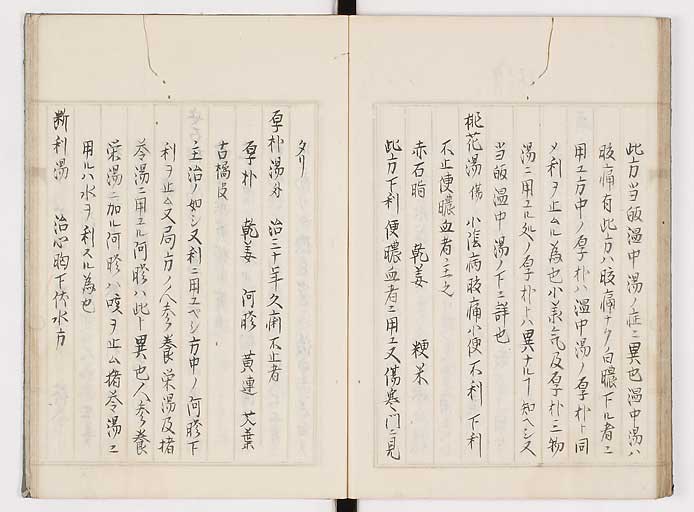 此方当皈温中湯ノ症ニ異也温中湯ハ
腹痛有此方ハ腹痛ナク白膿下ル者ニ
用ユ方中ノ厚朴ハ温中湯ノ厚朴ト同
メ利ヲ止ムル為也小美気及厚朴三物
湯ニ用ユル処ノ厚朴トハ異ナルヿ知ヘシ又
当皈温中湯ノ下ニ詳也
桃花湯 傷 小陰病腹痛小便不利下利
不止便膿血者主之
赤石脂 乾姜 粳米
此方下利便膿血者ニ用ユ又傷寒門ニ見
タリ
厚朴湯 外 治三十年久痢不止者
厚朴 乾姜 阿膠 黄連 艾葉
吉橘皮
主治ノ如シ又利ニ用ユベシ方中ノ阿膠下
利ヲ止ム又局方ノ人参養栄湯及猪
苓湯ニ用ユル阿膠ハ此ト異也人参養
栄湯ニ加ル阿膠ハ咳ヲ止ム猪苓湯ニ
用ルハ水ヲ利スル為也
断利湯 治心胸下伏水方